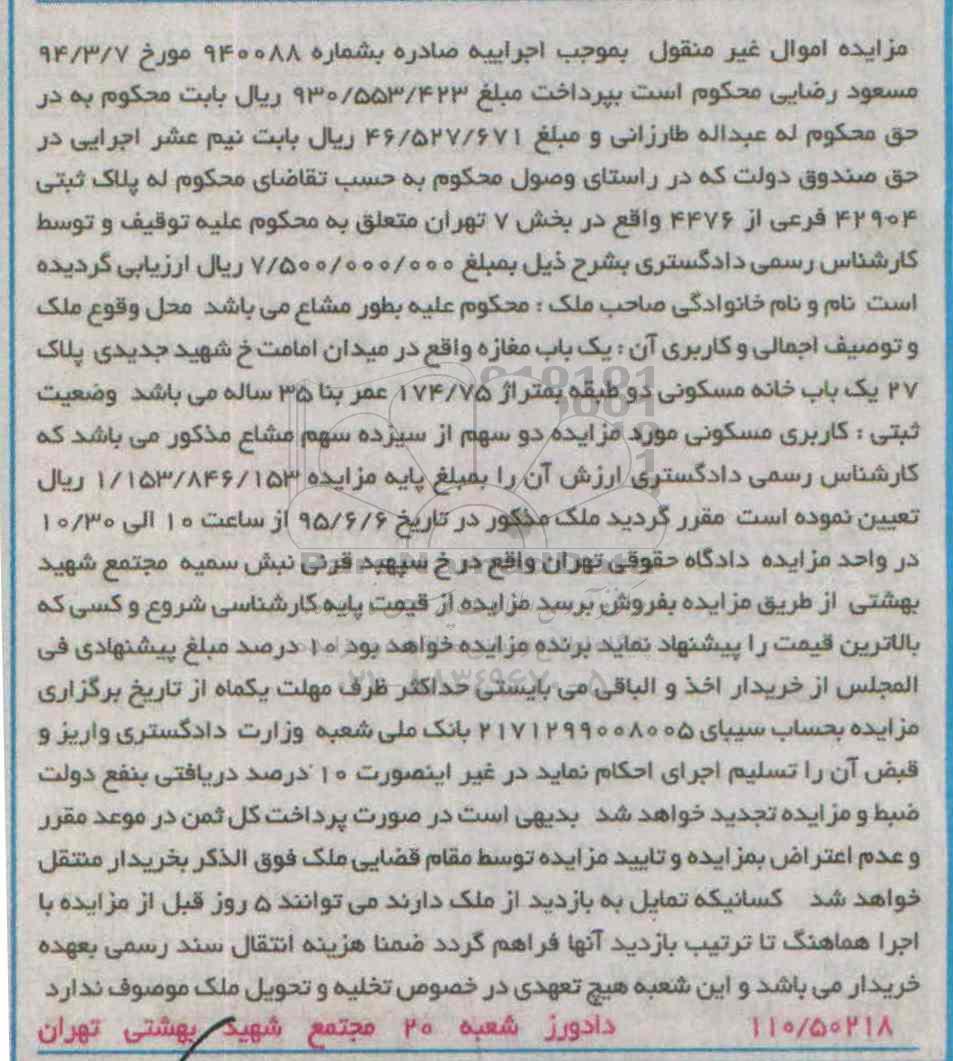 مزایده اموال غیر منقول بموجب اجراییه صادره بشماره ۹۴۰۰۸۸ مورخ ۹۴/۳/۷
مسعود رضایی محکوم است بپرداخت مبلغ ۹۳۰/۵۵۳/۴۲۳ ریال بابت محکوم به در
حق محکوم له عبداله طارزانی و مبلغ ۴۶/۵۲۷/۶۷۱ ریال بابت نیم عشر اجرایی در
حق صندوق دولت که در راستای وصول محکوم به حسب تقاضای محکوم له پلاک ثبتی
۴۲۹۰۴ فرعی از ۴۴۷۶ واقع در بخش ۷ تهران متعلق به محکوم علیه توقیف و توسط
کارشناس رسمی دادگستری بشرح ذیل بمبلغ ۷/۵۰۰/۰۰۰/۰۰۰ ریال ارزیابی گردیده
است نام و نام خانوادگی صاحب ملک : محکوم علیه بطور مشاع می باشد محل وقوع ملک
و توصیف اجمالی و کاربری آن : یک باب مغازه واقع در میدان امامت خ شهید جدیدی پلاک
۲۷ یک باب خانه مسکونی دو طبقه بمتراژ ۱۷۴/۷۵ عمر بنا ۳۵ ساله می باشد وضعیت
ثبتی : کاربری مسکونی مورد مزایده دو سهم از سیزده سهم مشاع مذکور می باشد که
کارشناس رسمی دادگستری ارزش آن را بمبلغ پایه مزایده ۱/۱۵۳/۸۴۶/۱۵۳ ریال
تعیین نموده است مقرر گردید ملک مذکور در تاریخ ۹۵/۶/۶ از ساعت ۱۰ الی ۱۰/۳۰
در واحد مزایده دادگاه حقوقی تهران واقع در خ سپهبد قرنی نبش سمیه مجتمع شهید
بهشتی از طریق مزایده بفروش برسد مزایده از قیمت پایه کارشناسی شروع و کسی که
بالاترین قیمت را پیشنهاد نماید برنده مزایده خواهد بود ۱۰ درصد مبلغ پیشنهادی فی
المجلس از خریدار اخذ و الباقی می بایستی حداکثر ظرف مهلت یکماه از تاریخ برگزاری
مزایده بحساب سیبای ۲۱۷۱۲۹۹۰۰۸۰۰۵ بانک ملی شعبه وزارت دادگستری واریز و
قبض آن را تسلیم اجرای احکام نماید در غیر اینصورت ۱۰ درصد دریافتی بنفع دولت
ضبط و مزایده تجدید خواهد شد بدیهی است در صورت پرداخت کل ثمن در موعد مقرر
و عدم اعتراض بمزایده و تایید مزایده توسط مقام قضایی ملک فوق الذکر بخریدار منتقل
خواهد شد کسانیکه تمایل به بازدید از ملک دارند می توانند ۵ روز قبل از مزایده با
اجرا هماهنگ تا ترتیب بازدید آنها فراهم گردد ضمنا هزینه انتقال سند رسمی بعهده
خریدار می باشد و این شعبه هیچ تعهدی در خصوص تخلیه و تحویل ملک موصوف ندارد
۱۱۰/۵۰۲۱۸ دادورز شعبه ۲۰ مجتمع شهید بهشتی تهران